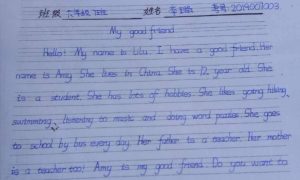 班级 六年级 姓名 李 考号:2019001003
My good friend
Hello! My name is Lulu. I have a good friend. Her
name is Amy. She lives in China. She is 12 year old. She
is a student. She has lots of hobbies. She likes going hiking,
swimming, listening to music and doing word puzzles. She goes
to school by bus every day. Her father is a teacher. Her mother
is a teacher too! Amy is my good friend. Do you want to